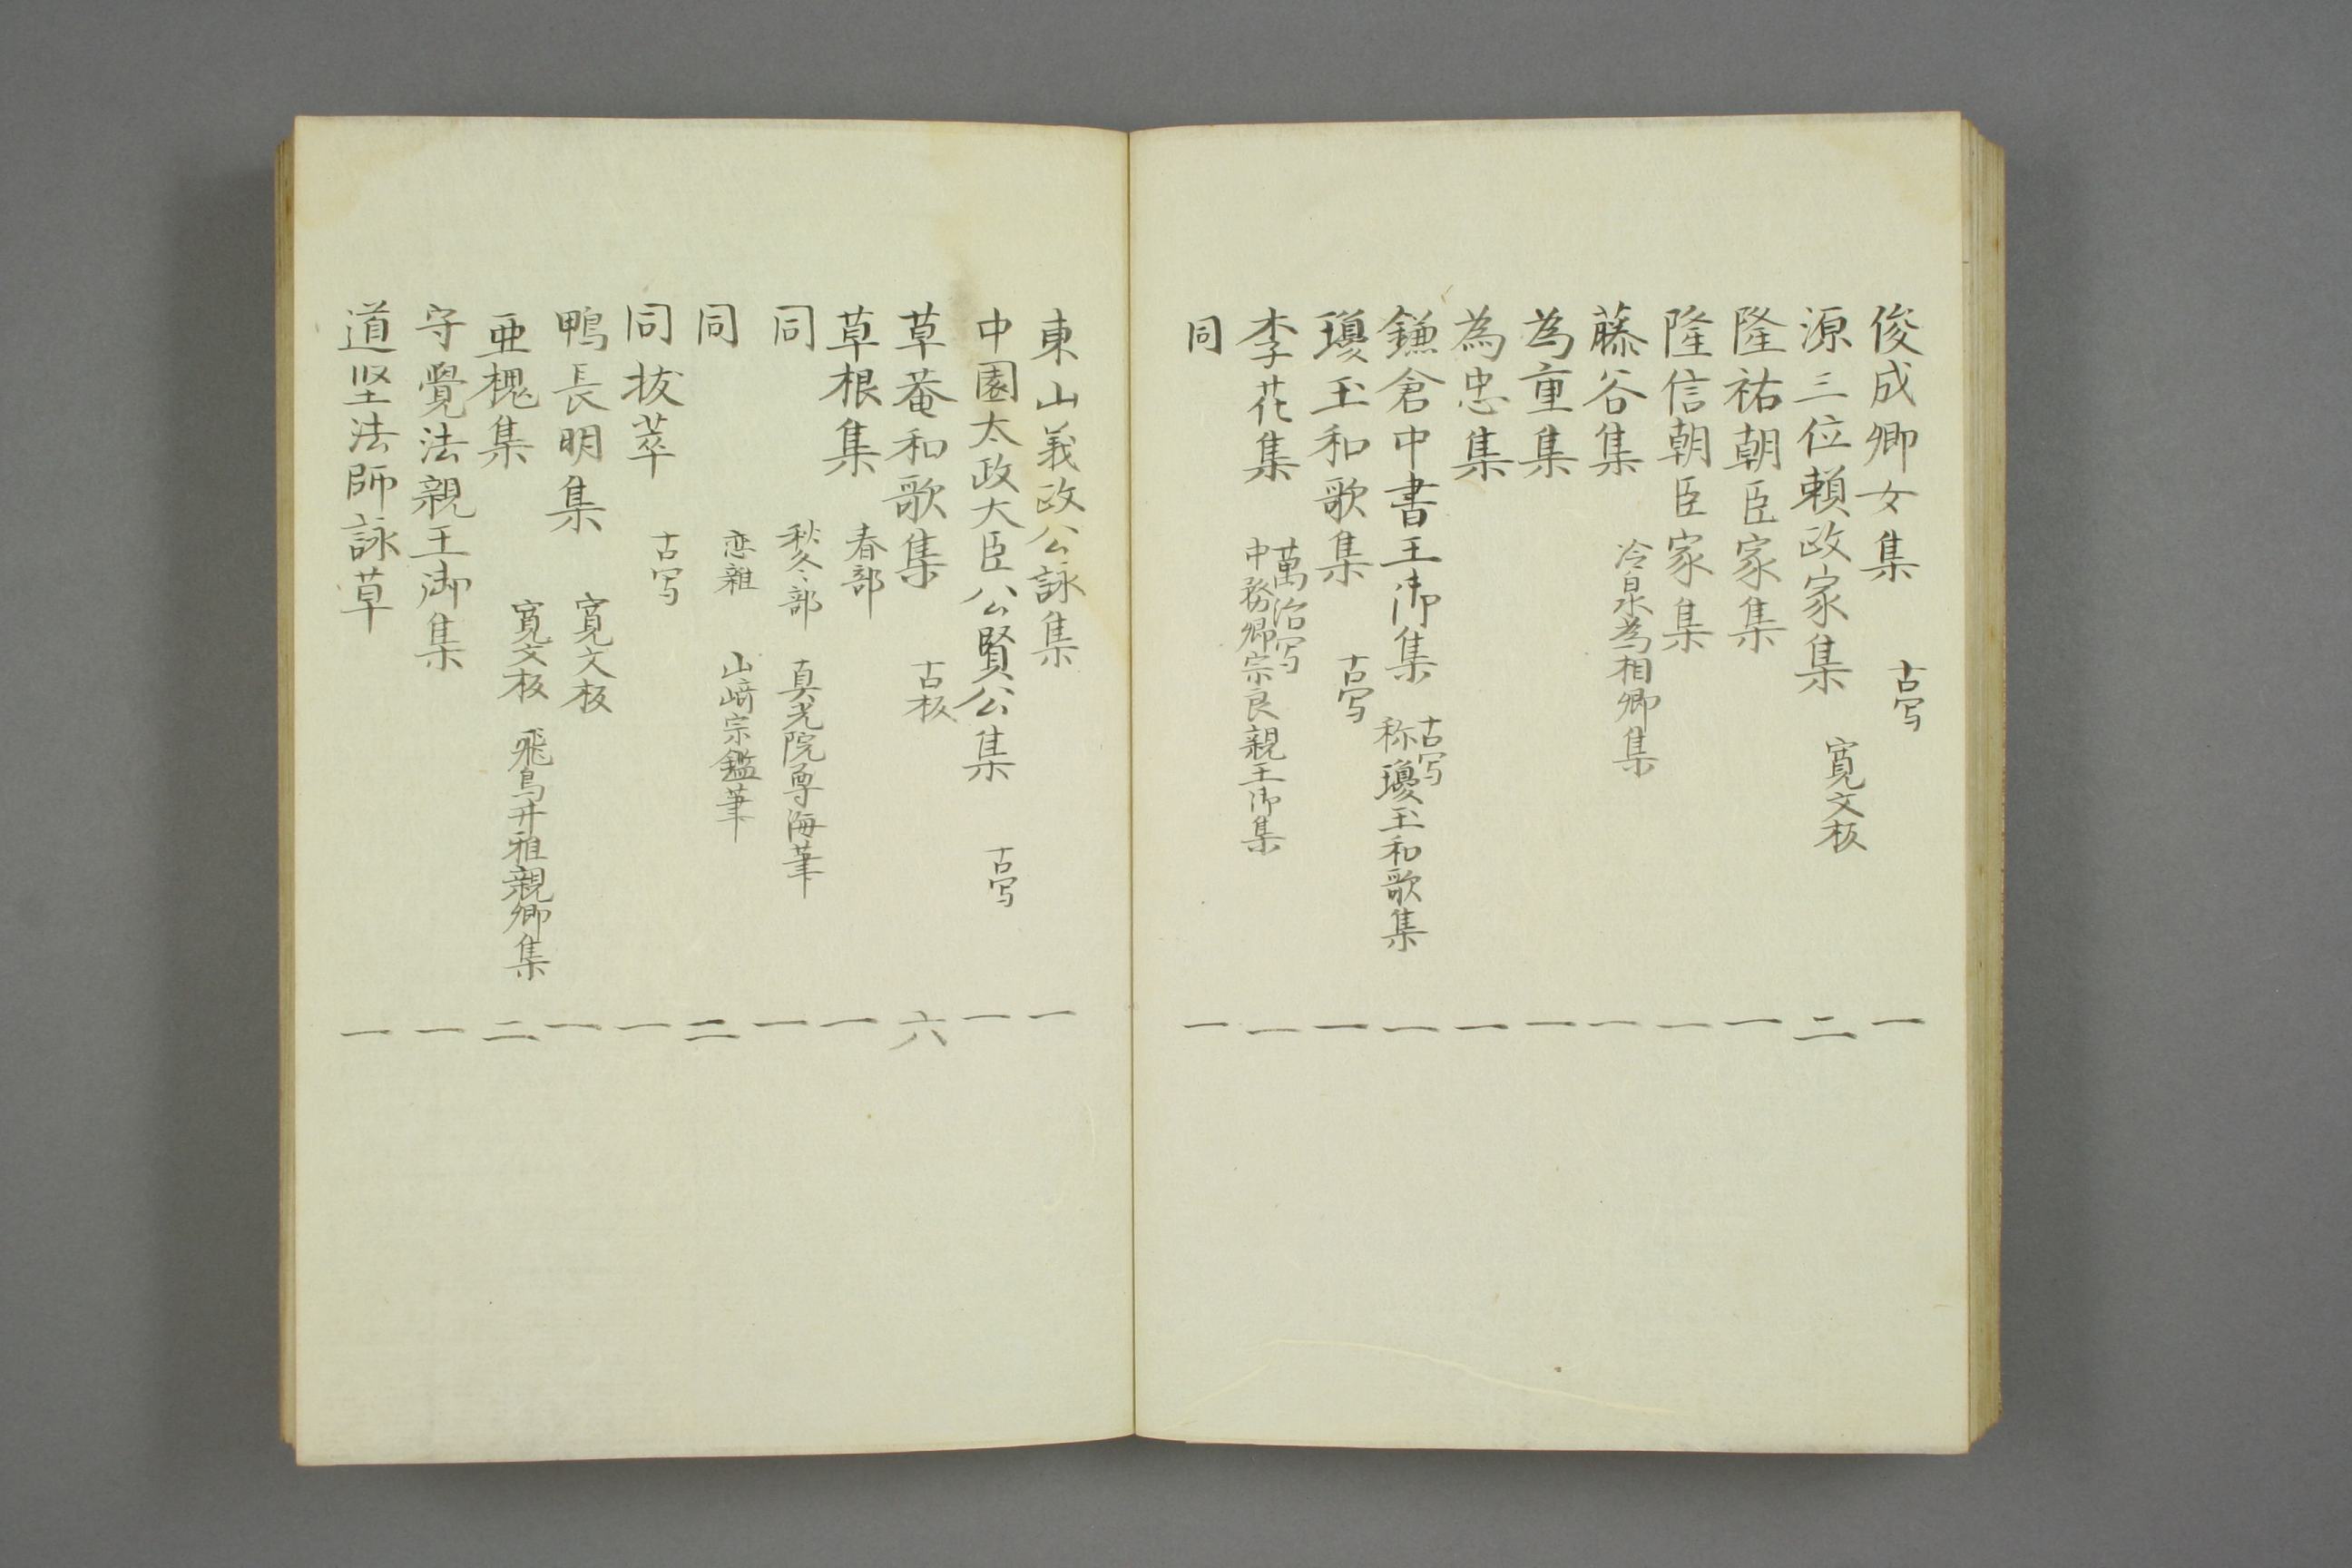 俊成卿女集 古写 一
源三位頼政家集 寛文板 二
隆祐朝臣家集 一
隆信朝臣家集 一
藤谷集 冷泉為相卿集 一
為重集 一
為忠集 一
鎌倉中書王御集 古写 称瓊玉和歌集 一
瓊玉和歌集 古写 一
李花集 萬治写 中務卿宗良親王御集 一
同 一
東山義政公詠集 一
中園太政大臣公賢公集 古写 一
草菴和歌集 古板 六
草根集 春部 一
同 秋冬部 真光院尊海筆 一
同 恋雑 山﨑宗鑑筆 二
同抜萃 古写 一
鴨長明集 寛文板 一
亜槐集 寛文板 飛鳥井雅親卿集 二
守覺法親王御集 一
道坚法師詠草 一